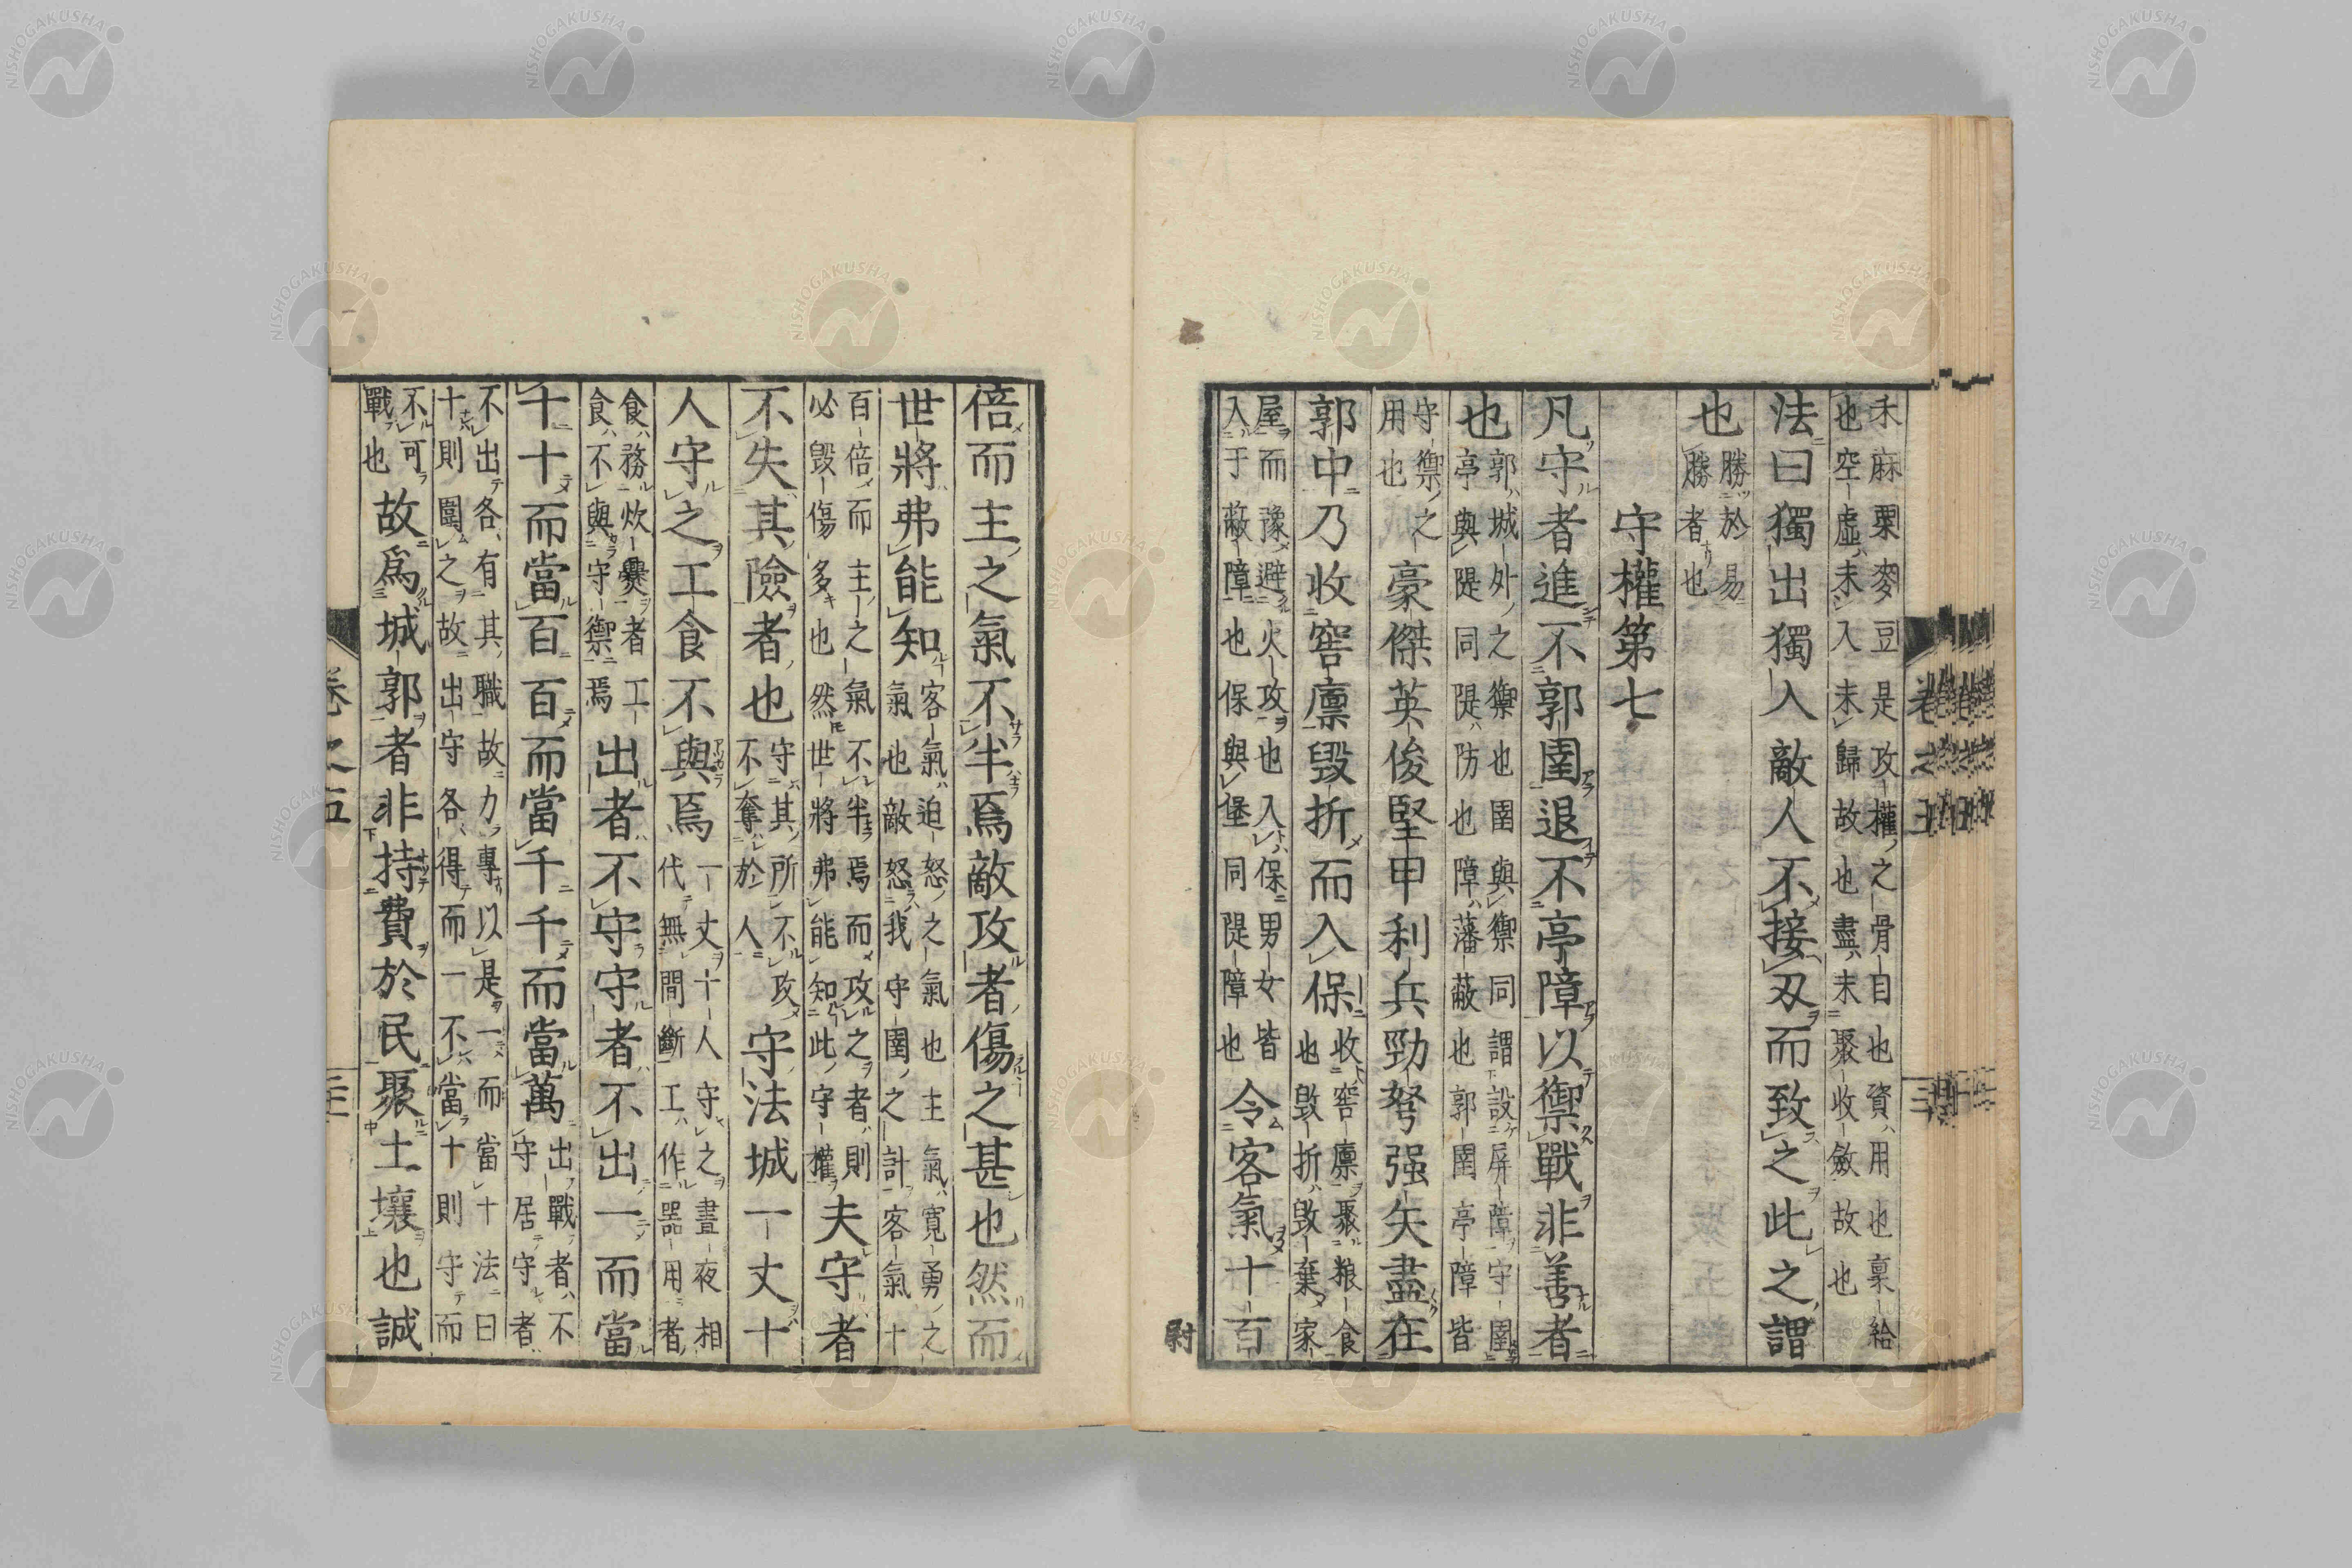 禾麻粟麥豆是攻權之骨目也資用也稟給
也空虛未入未歸故也盡末聚收斂故也
法曰獨出獨入敵人不接刃而致之此之謂
也勝於易
勝者也
守權第七
凡守者進不郭圉退不亭障以禦戰非善者
也郭城外之禦也圉與禦同謂設屏障守圉
亭與隄同隄防也障藩蔽也郭圉亭障皆
守禦之
用也豪傑英俊堅甲利兵勁弩强矢盡在
郭中乃收窖廩毀折而入保收窖廩聚粮食
也毀折毀棄家
屋而豫避火攻也入保男女皆
入于蔽障也保與堡同隄障也令客氣十百
倍而主之氣不半焉敵攻者傷之甚也然而
世將弗能知客氣迫怒之氣也主氣寬勇之
氣也敵怒我守圉之計客氣十
百倍而主之氣不半焉而攻之者則
必毀傷多也然世將弗能知此守權夫守者
不失其險者也守其所不攻
不奪於人守法城一丈十
人守之工食不與焉一丈十人守之晝夜相
代無間斷工作器用者
食務炊爨者工
食不與守禦焉出者不守守者不出一而當
十十而當百百而當千千而當萬出戰者不
守居守者
不出各有其職故力專以是一而當十法曰
十則圍之故出守各得而一不當十則守而
不可
戰也故爲城郭者非持費於民聚土壤也誠
卷之五
尉